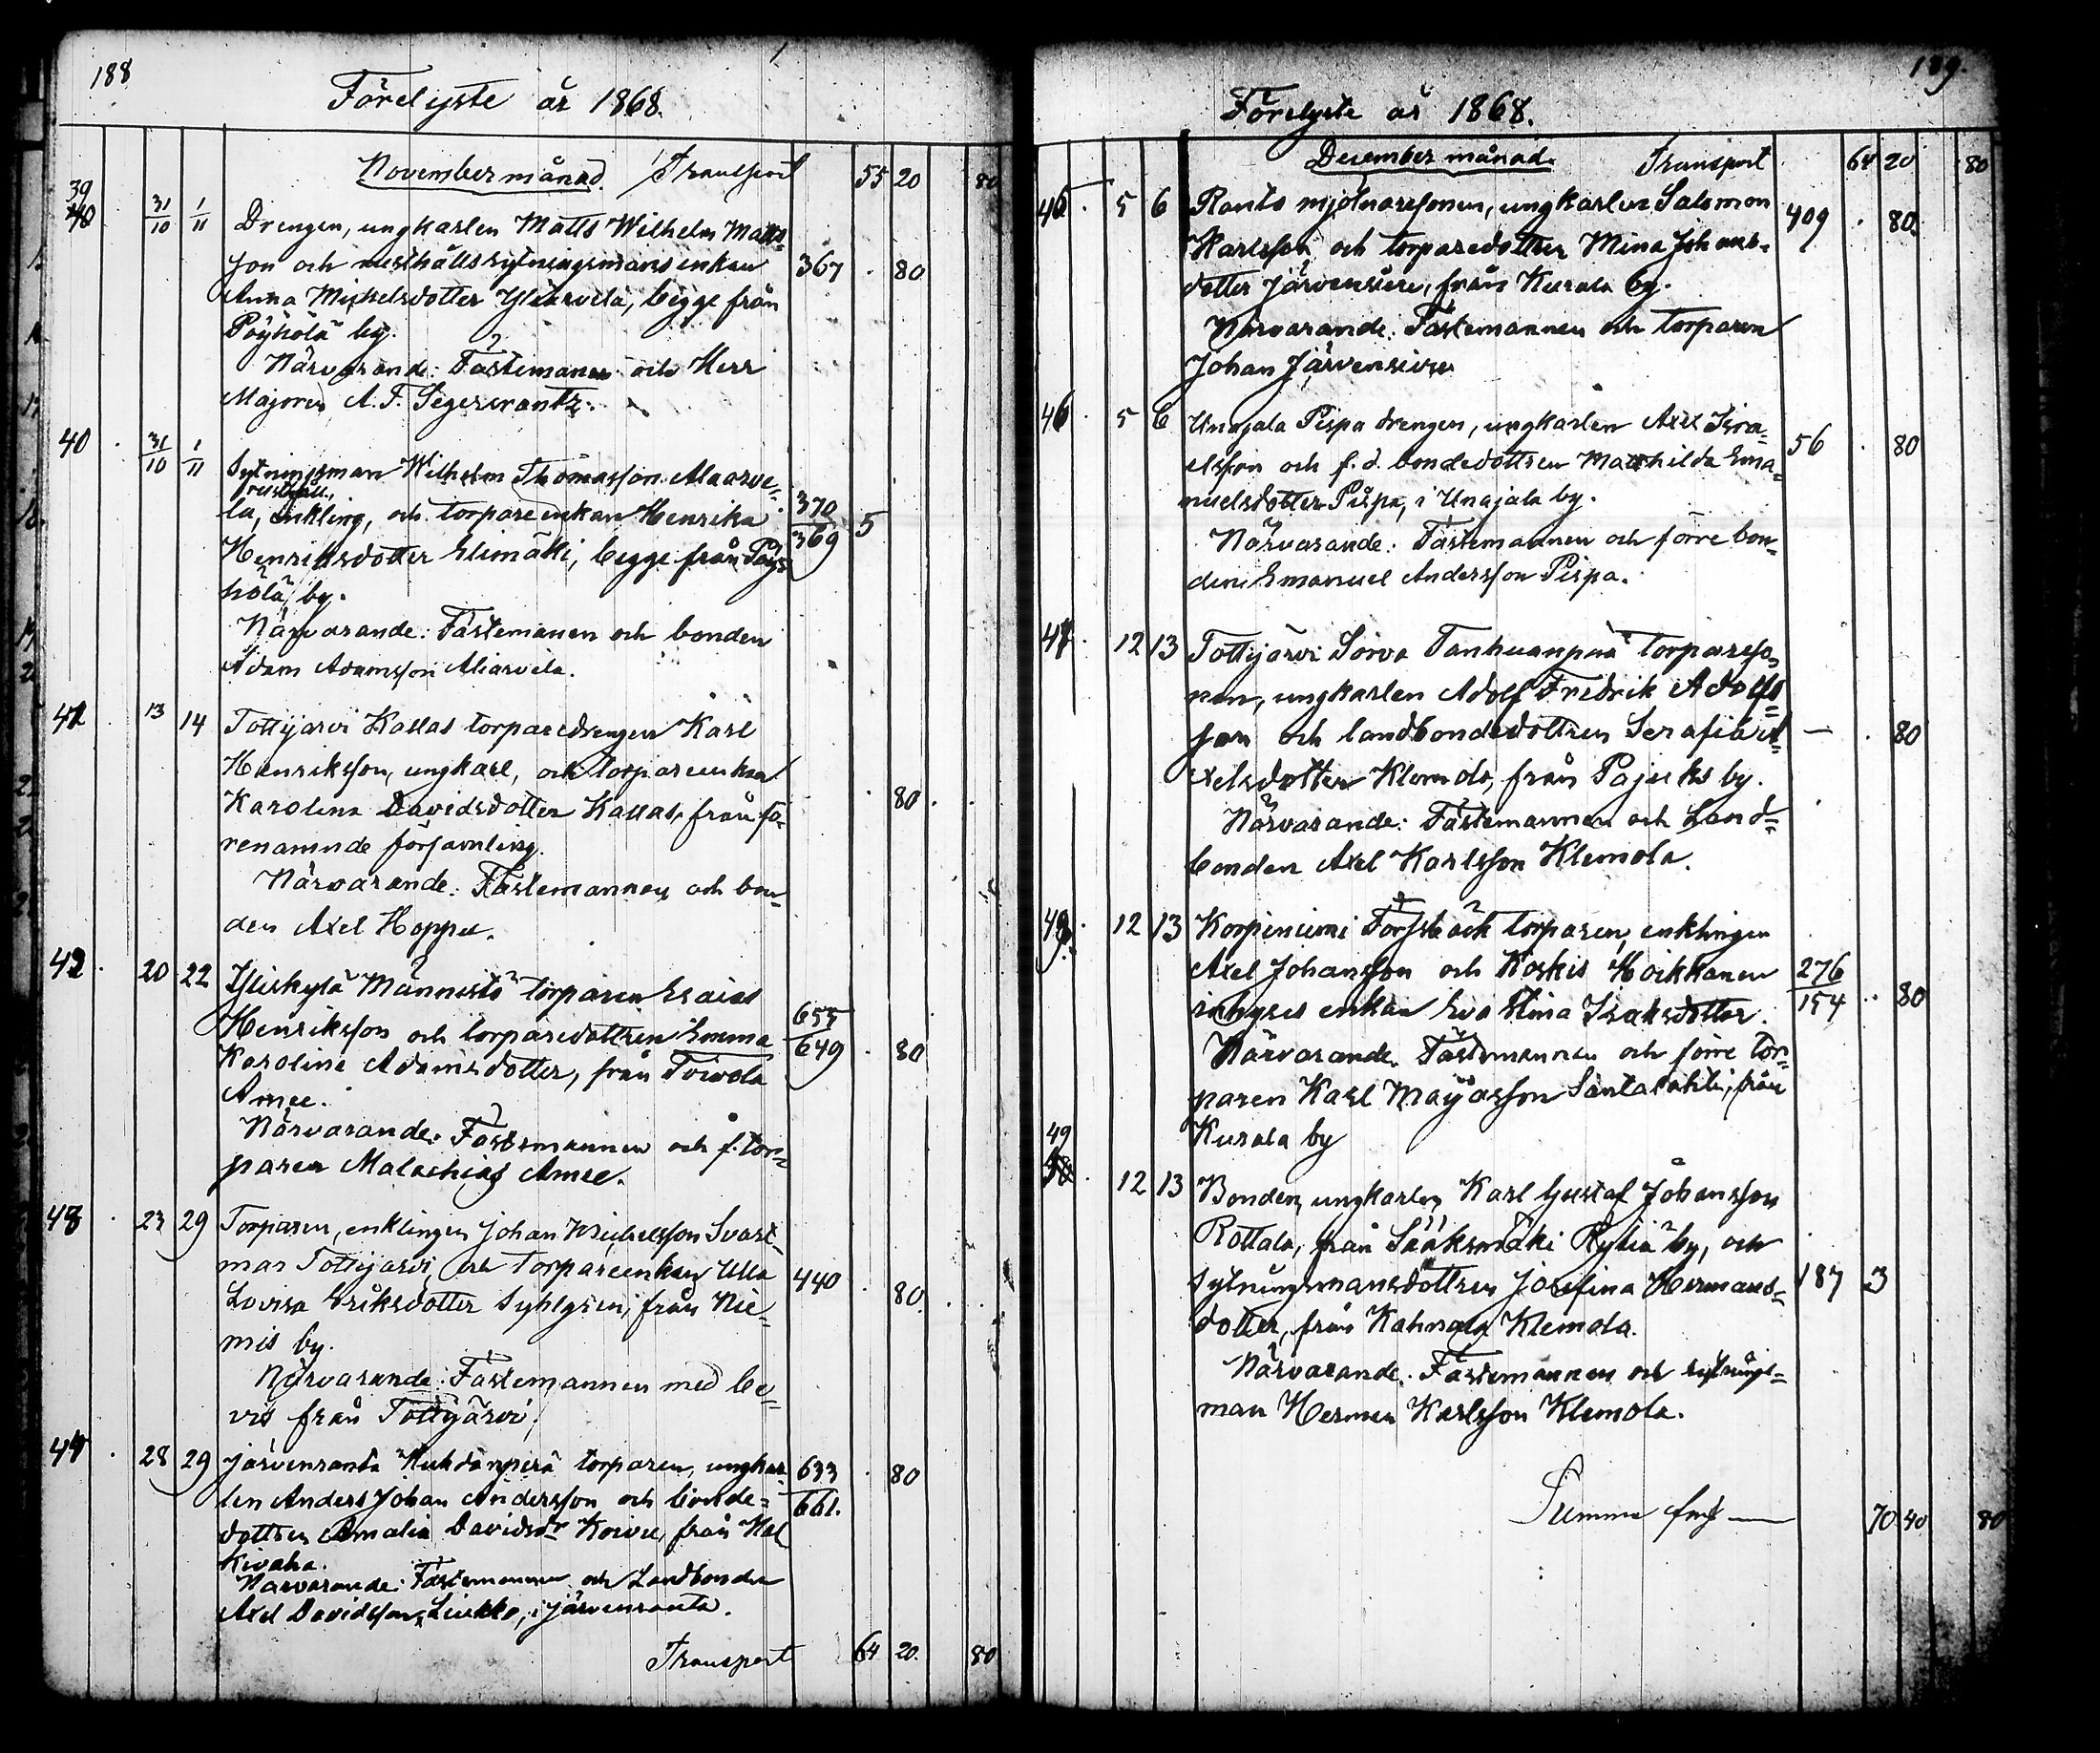 188
Förelyste år 1868.
November månad. Transport 55 20 80
39 31/10 1/11 Drengen, ungkarlen Matts Wilhelm Matts-
son och rusthållssytningsmansenkan 367 . 80
Anna Mickelsdotter Yliarvela, begge från
Pöyhölä by.
Närvarande: Fästemannen och Herr
Majoren A. F. Segercrantz.
40 . 31/10 1/11 Sytningsman Wilhelm Thomasson Aliarve-
rusthåll
la, enkling, och torpare enkan Henrika 370/369 5
Henriksdotter Elimäki, begge från Pöy-
hölä by.
Närvarande: Fästemannen och bonden
Adam Adamsson Aliarvela.
41 . 13 14 Tottijärvi Kallas torparedrengen Karl
Henriksson, ungkarl, och torpareenkan
Karolina Davidsdotter Kallas, från fö- . 80
renämnde församling.
Närvarande: Fästemannen och bon-
den Axel Hoppu.
42 . 20 22 Yliskylä Männistö torparen Esaias
Henriksson och torparedottren Emma 655/649 . 80
Karolina Adamsdotter, från Toivola
Amee.
Närvarande: Fästemannen och f. tor-
paren Malachias Amee.
43 . 23 29 Torparen, enklingen Johan Michelsson Svart-
mar Tottijärvi, och torpareenkan Ulla 440 . 80
Lovisa Eriksdotter Syhlgren, från Nie-
mis by.
Närvarande: Fästemannen med be-
vis från Tottijärvi.
44 . 28 29 Järvenranta Kuhdanperä torparen, ungkar- 633/661. . 80
len Anders Johan Andersson och bonde-
dottren Amalia Davidsdr Koivu, från Hal
kivaha.
Närvarande: Fästemannen och Landbonden
Axel Davidsson Liukko, i Järvenranta.
Transport 64 20 80
189.
Förelyste år 1868.
December månad. Transport 64 20 80
45 . 5 6 Rants mjölnaresonen, ungkarlen Salomon 409 . 80.
Karlsson och torparedottren Mina Johans-
dotter Järvensivu, från Kurala by.
Närvarande: Fästemannen och torparen
Johan Järvensivu
46 . 5 6 Unajala Pispa drengen, ungkarlen Axel Isra- 56 . 80
elsson och f. d. bondedottren Mathilda Ema-
nuelsdotter Pispa, i Unajala by.
Närvarande: Fästemannen och förre bon-
den Emanuel Andersson Pispa.
47 . 12 13 Tottijärvi Sorva Tanhuanpää torpareso-
nen, ungkarlen Adolf Fredrik Adolfs-
son och landbondedottren Serafia A- — . 80
xelsdotter Klemola, från Pajuks by.
Närvarande: Fästemannen och Land-
bonden Axel Karlsson Klemola.
48 . 12 13 Korpiniemi Forsbäck torparen, enklingen
Axel Johansson och Koskis Hoikkanen 276/154 . 80
inhyses enkan Eva Stina Isaksdotter.
Närvarande: Fästemannen och förre tor-
paren Karl Mayasson Santalahti, från
Kurala by
49 . 12 13 Bonden, ungkarlen Karl Gustaf Johansson
Rottala, från Sääksmäki Rytiä by, och
sytningsmansdottren Josefina Hermans- 187 3
dotter, från Kahnala Klemola.
Närvarande: Fästemannen och sytnings-
man Herman Karlsson Klemola.
Summa 70 40 80